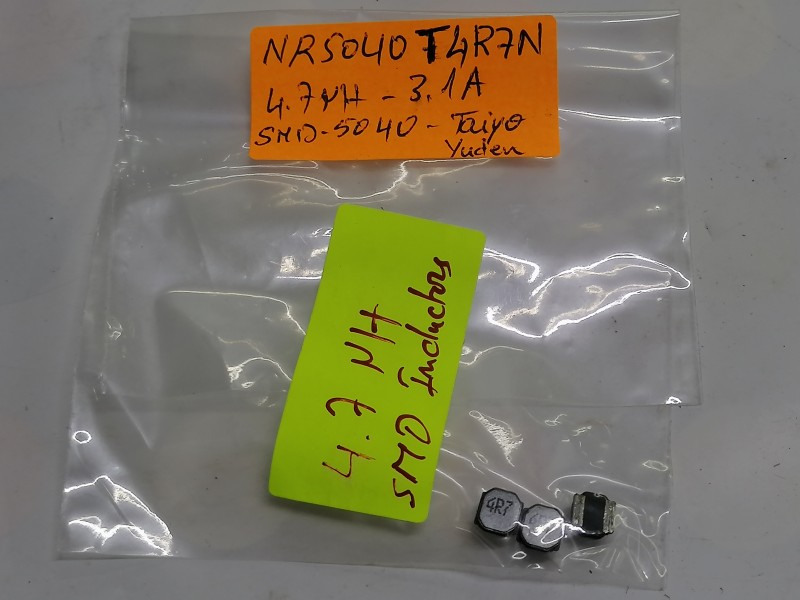 NR5040T4R7N
4.7µH - 3.1A
SMD-5040 - Taiyo
Yuden
4.7 µH
SMD Inductors
4R7